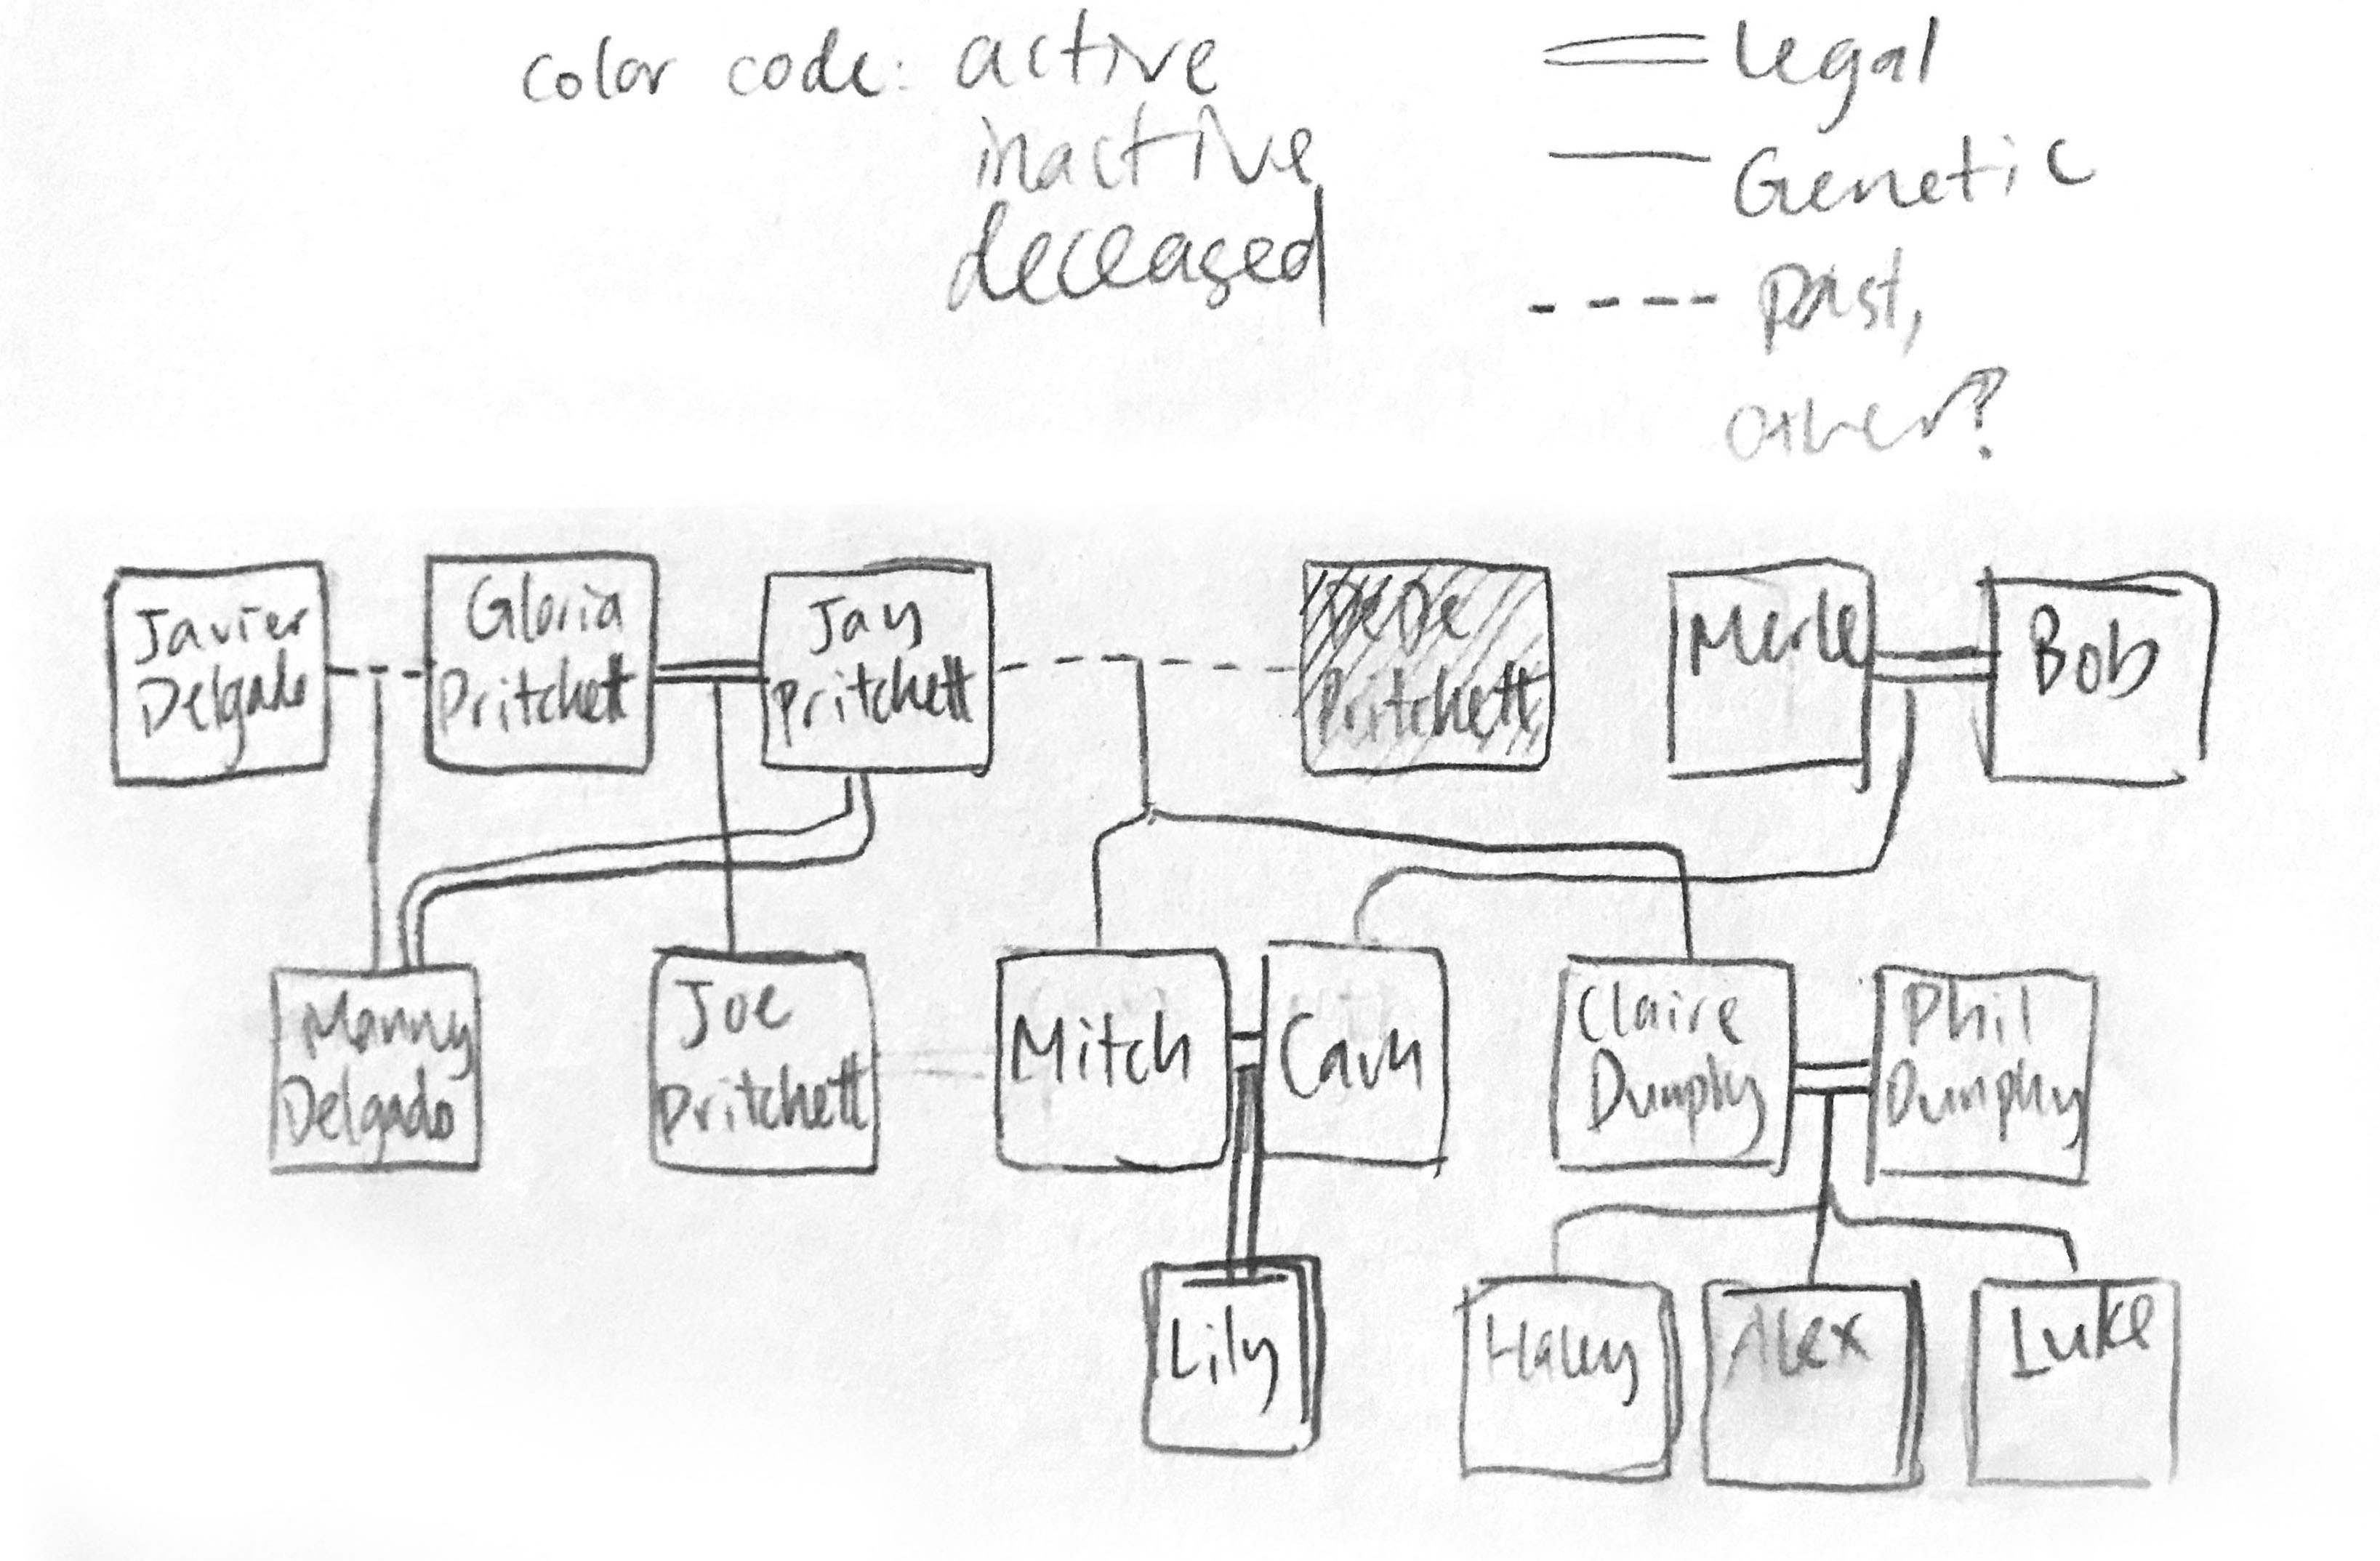 color code: active
inactive
deceased
legal
Genetic
past,
other?
Javier
Delgado
Gloria
Pritchett
Jay
Pritchett
DeDe
Pritchett
Merle
Bob
Manny
Delgado
Joe
Pritchett
Mitch
Cam
Claire
Dunphy
Phil
Dunphy
Lily
Haley
Alex
Luke